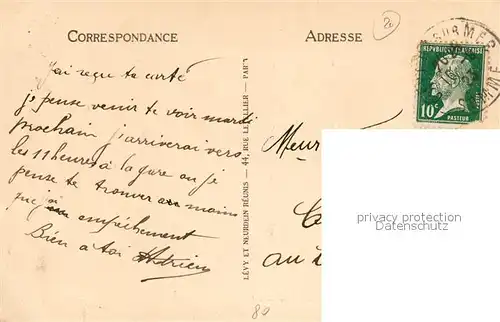 CORRESPONDANCE
ADRESSE
J'ai reçu ta carte
je pense venir te voir mardi
prochain j'arriverai vers
les 11 heures à la gare ou je
pense te trouver au moins
que j'ai empéchement
Bien à toi Adrien
LÉVY ET NEURDEIN RÉUNIS — 44, RUE LETELLIER — PARIS
SUR MER
RÉPUBLIQUE FRANÇAISE
10c
PASTEUR
POSTES
Meur
au
privacy protection
www.oldthing.de
80